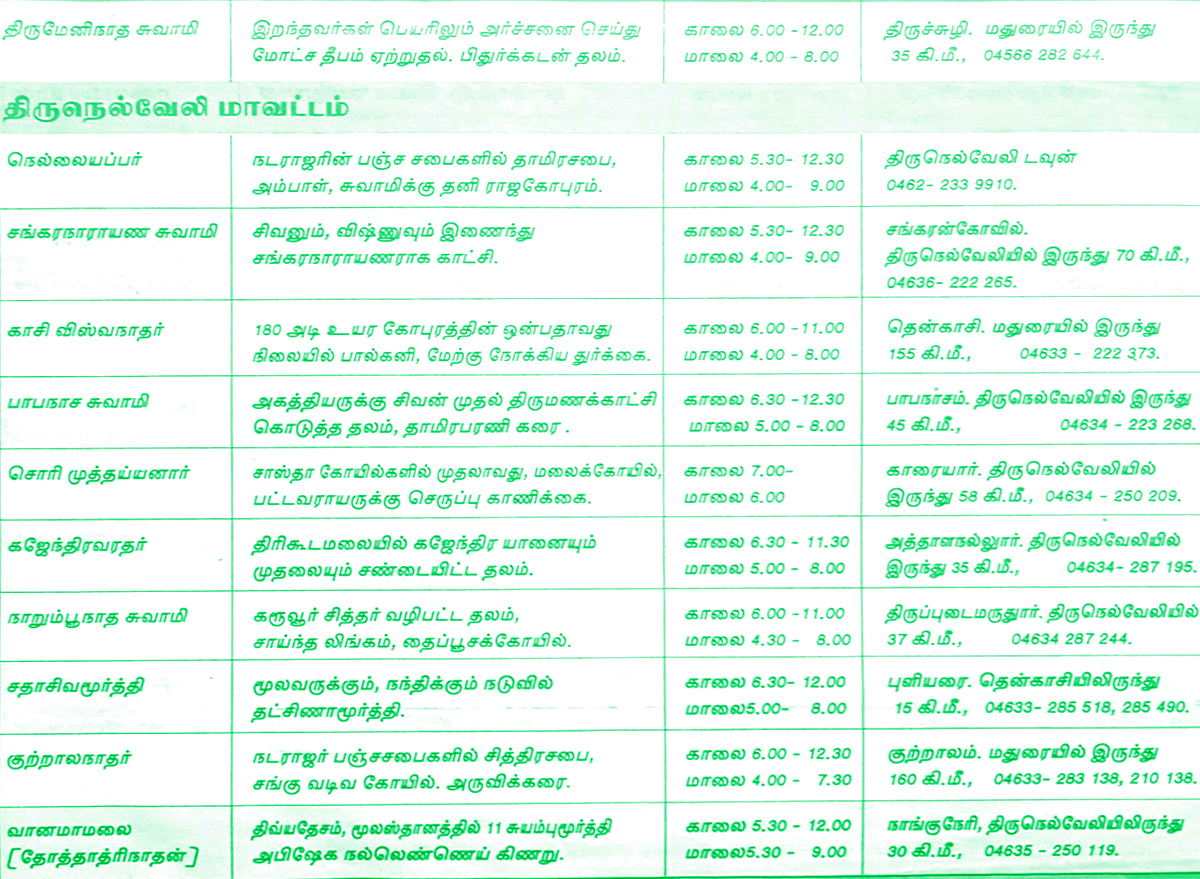 திருமேனிநாத சுவாமி
இறந்தவர்கள் பெயரிலும் அர்ச்சனை செய்து
மோட்ச தீபம் ஏற்றுதல். பிதுர்க்கடன் தலம்.
காலை 6.00 -12.00
மாலை 4.00 - 8.00
திருச்சுழி. மதுரையில் இருந்து
35 கி.மீ., 04566 282 644.
திருநெல்வேலி மாவட்டம்
நெல்லையப்பர்
நடராஜரின் பஞ்ச சபைகளில் தாமிரசபை,
அம்பாள், சுவாமிக்கு தனி ராஜகோபுரம்.
காலை 5.30- 12.30
மாலை 4.00- 9.00
திருநெல்வேலி டவுன்
0462- 233 9910.
சங்கரநாராயண சுவாமி
சிவனும், விஷ்ணுவும் இணைந்து
சங்கரநாராயணராக காட்சி.
காலை 5.30- 12.30
மாலை 4.00- 9.00
சங்கரன்கோவில்.
திருநெல்வேலியில் இருந்து 70 கி.மீ.,
04636- 222 265.
காசி விஸ்வநாதர்
180 அடி உயர கோபுரத்தின் ஒன்பதாவது
நிலையில் பால்கனி, மேற்கு நோக்கிய துர்க்கை.
காலை 6.00 -11.00
மாலை 4.00 - 8.00
தென்காசி. மதுரையில் இருந்து
155 கி.மீ., 04633 - 222 373.
பாபநாச சுவாமி
அகத்தியருக்கு சிவன் முதல் திருமணக்காட்சி
கொடுத்த தலம், தாமிரபரணி கரை .
காலை 6.30 -12.30
மாலை 5.00 - 8.00
பாபநாசம். திருநெல்வேலியில் இருந்து
45 கி.மீ., 04634 - 223 268.
சொரி முத்தய்யனார்
சாஸ்தா கோயில்களில் முதலாவது, மலைக்கோயில்,
பட்டவராயருக்கு செருப்பு காணிக்கை.
காலை 7.00-
மாலை 6.00
காரையார். திருநெல்வேலியில்
இருந்து 58 கி.மீ., 04634 - 250 209.
கஜேந்திரவரதர்
திரிகூடமலையில் கஜேந்திர யானையும்
முதலையும் சண்டையிட்ட தலம்.
காலை 6.30 - 11.30
மாலை 5.00 - 8.00
அத்தாளநல்லூர். திருநெல்வேலியில்
இருந்து 35 கி.மீ., 04634- 287 195.
நாறும்பூநாத சுவாமி
கரூவூர் சித்தர் வழிபட்ட தலம்,
சாய்ந்த லிங்கம், தைப்பூசக்கோயில்.
காலை 6.00 -11.00
மாலை 4.30 - 8.00
திருப்புடைமருதுார். திருநெல்வேலியில்
37 கி.மீ., 04634 287 244.
சதாசிவமூர்த்தி
மூலவருக்கும், நந்திக்கும் நடுவில்
தட்சிணாமூர்த்தி.
காலை 6.30- 12.00
மாலை5.00- 8.00
புளியரை. தென்காசியிலிருந்து
15 கி.மீ., 04633- 285 518, 285 490.
குற்றாலநாதர்
நடராஜர் பஞ்சசபைகளில் சித்திரசபை,
சங்கு வடிவ கோயில். அருவிக்கரை.
காலை 6.00 - 12.30
மாலை 4.00 - 7.30
குற்றாலம். மதுரையில் இருந்து
160 கி.மீ., 04633- 283 138, 210 138.
வானமாமலை
[தோத்தாத்ரிநாதன்]
திவ்யதேசம், மூலஸ்தானத்தில் 11 சுயம்புமூர்த்தி
அபிஷேக நல்லெண்ணெய் கிணறு.
காலை 5.30 - 12.00
மாலை5.30 - 9.00
நாங்குநேரி, திருநெல்வேலியிலிருந்து
30 கி.மீ., 04635 - 250 119.